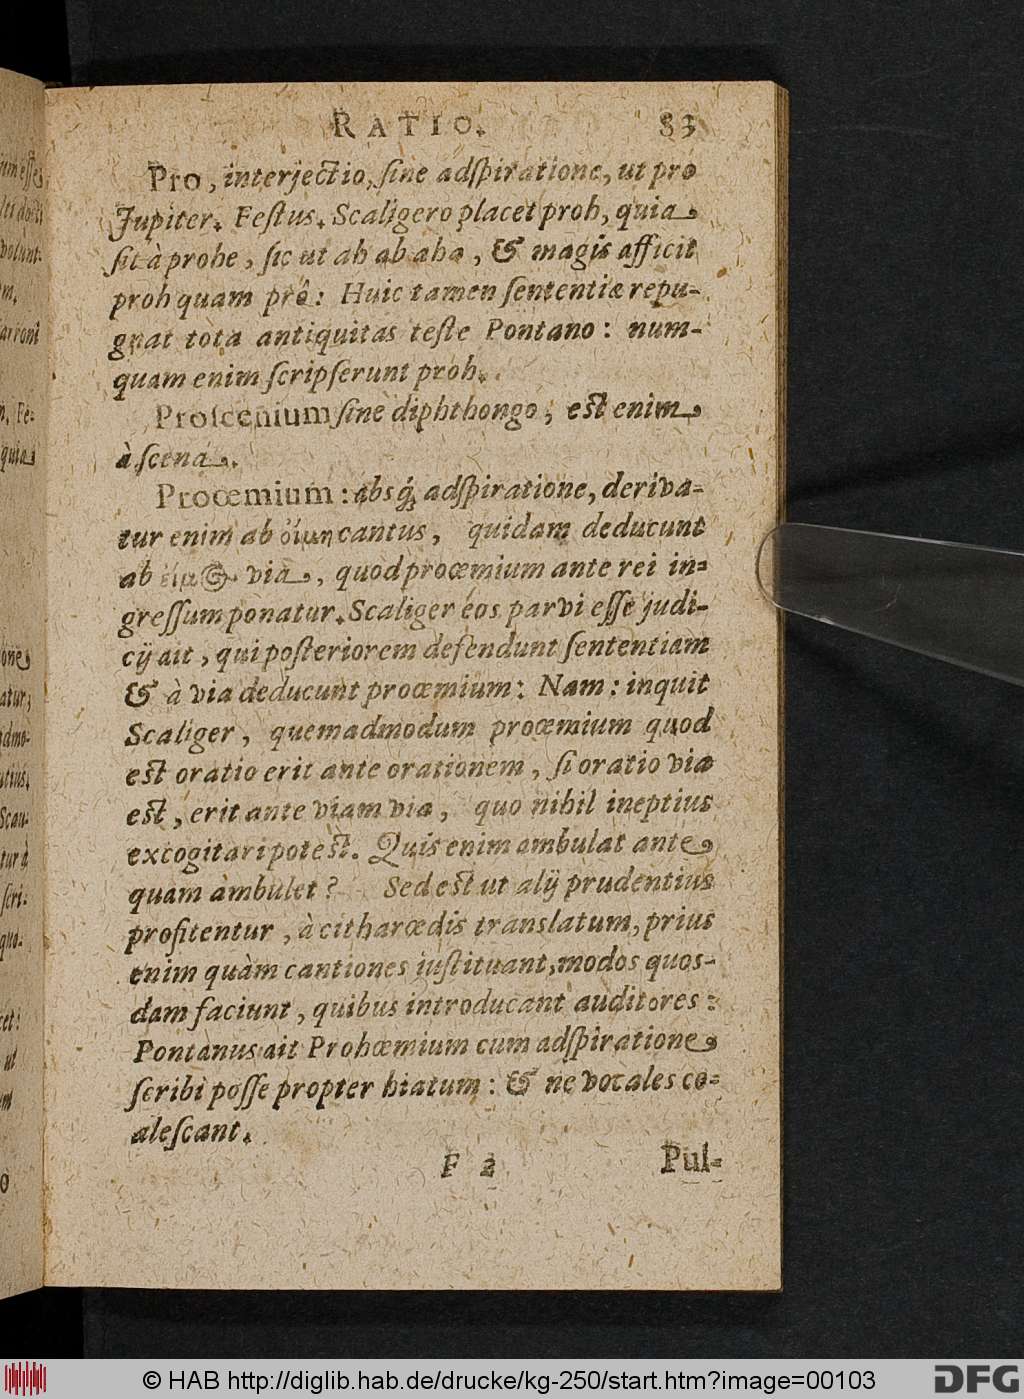 RATIO. 83
Pro, interjectio, sine adspiratione, ut pro
Jupiter. Festus. Scaligero placet proh, quia
sit à prohe, sic ut ah ab aha, & magis afficit
proh quam prô: Huic tamen sententiæ repu-
gnat tota antiquitas teste Pontano: num-
quam enim scripserunt proh.
Proscenium sine diphthongo, est enim
à scena.
Procœmium: absq́; adspiratione, deriva-
tur enim ab οἴμη cantus, quidam deducunt
ab via, quod proœmium ante rei in-
gressum ponatur. Scaliger eos parvi esse judi-
cij ait, qui posteriorem defendunt sententiam
& à via deducunt proœmium: Nam: inquit
Scaliger, quemadmodum proœmium quod
est oratio erit ante orationem, si oratio via
est, erit ante viam via, quo nihil ineptius
excogitari potest. Quis enim ambulat ante
quam ambulet? Sed est ut alij prudentius
profitentur, à citharœdis translatum, prius
enim quàm cantiones iustituant, modos quos-
dam faciunt, quibus introducant auditores:
Pontanus ait Prohœmium cum adspiratione
scribi posse propter hiatum: & ne vocales co-
alescant.
F 2 Pul-
© HAB http://diglib.hab.de/drucke/kg-250/start.htm?image=00103
DFG